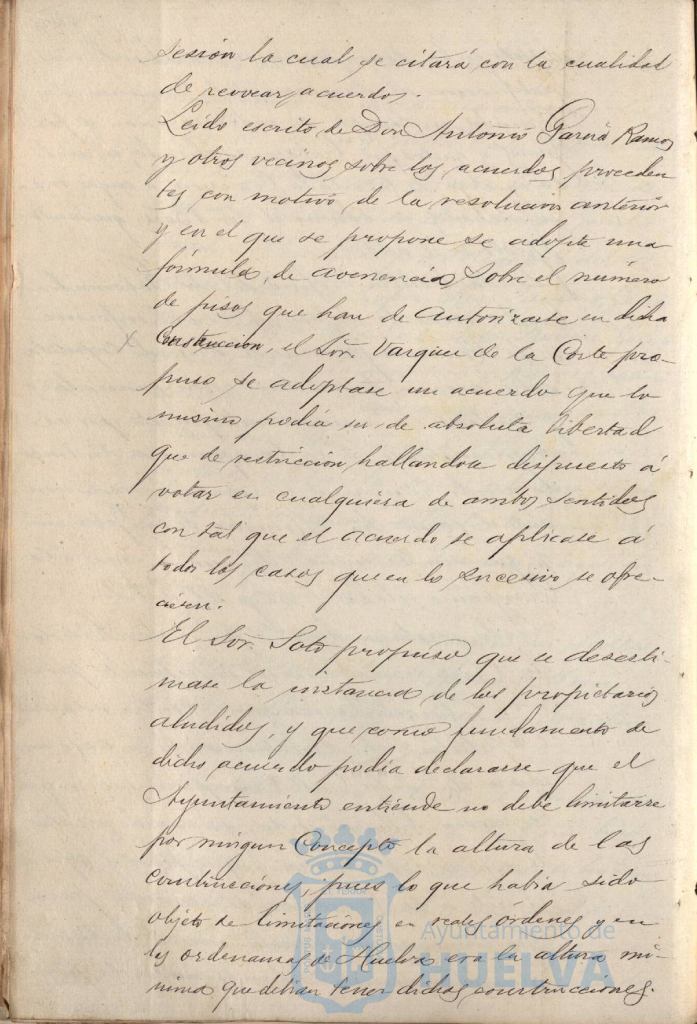 sesión la cual se citará con la cualidad
de revocar acuerdos.
Leido escrito de Don Antonio Garcia Ramos
y otros vecinos sobre los acuerdos proceden
tes con motivo de la resolucion anterior
y en el que se propone se adopte una
fórmula de avenencia sobre el número
de pisos que han de autorizarse en dicha
Construccion, el Sor. Vazquez de la Corte pro-
puso se adoptase un acuerdo que lo
mismo podia ser de absoluta libertad
que de restriccion, hallandose dispuesto á
votar en cualquiera de ambos sentidos
con tal que el acuerdo se aplicase á
todos los casos que en lo sucesivo se ofre-
ciesen.
El Sor. Soto propuso que se desesti-
mase la instancia de los propietarios
aludidos, y que como fundamento de
dicho acuerdo podia declararse que el
Ayuntamiento entiende no debe limitarse
por ningun Concepto la altura de las
construcciones, pues lo que habia sido
objeto de limitaciones en reales órdenes y en
las ordenanzas de Huelva era la altura mí-
nima que debian tener dichas construcciones.
Ayuntamiento de
HUELVA